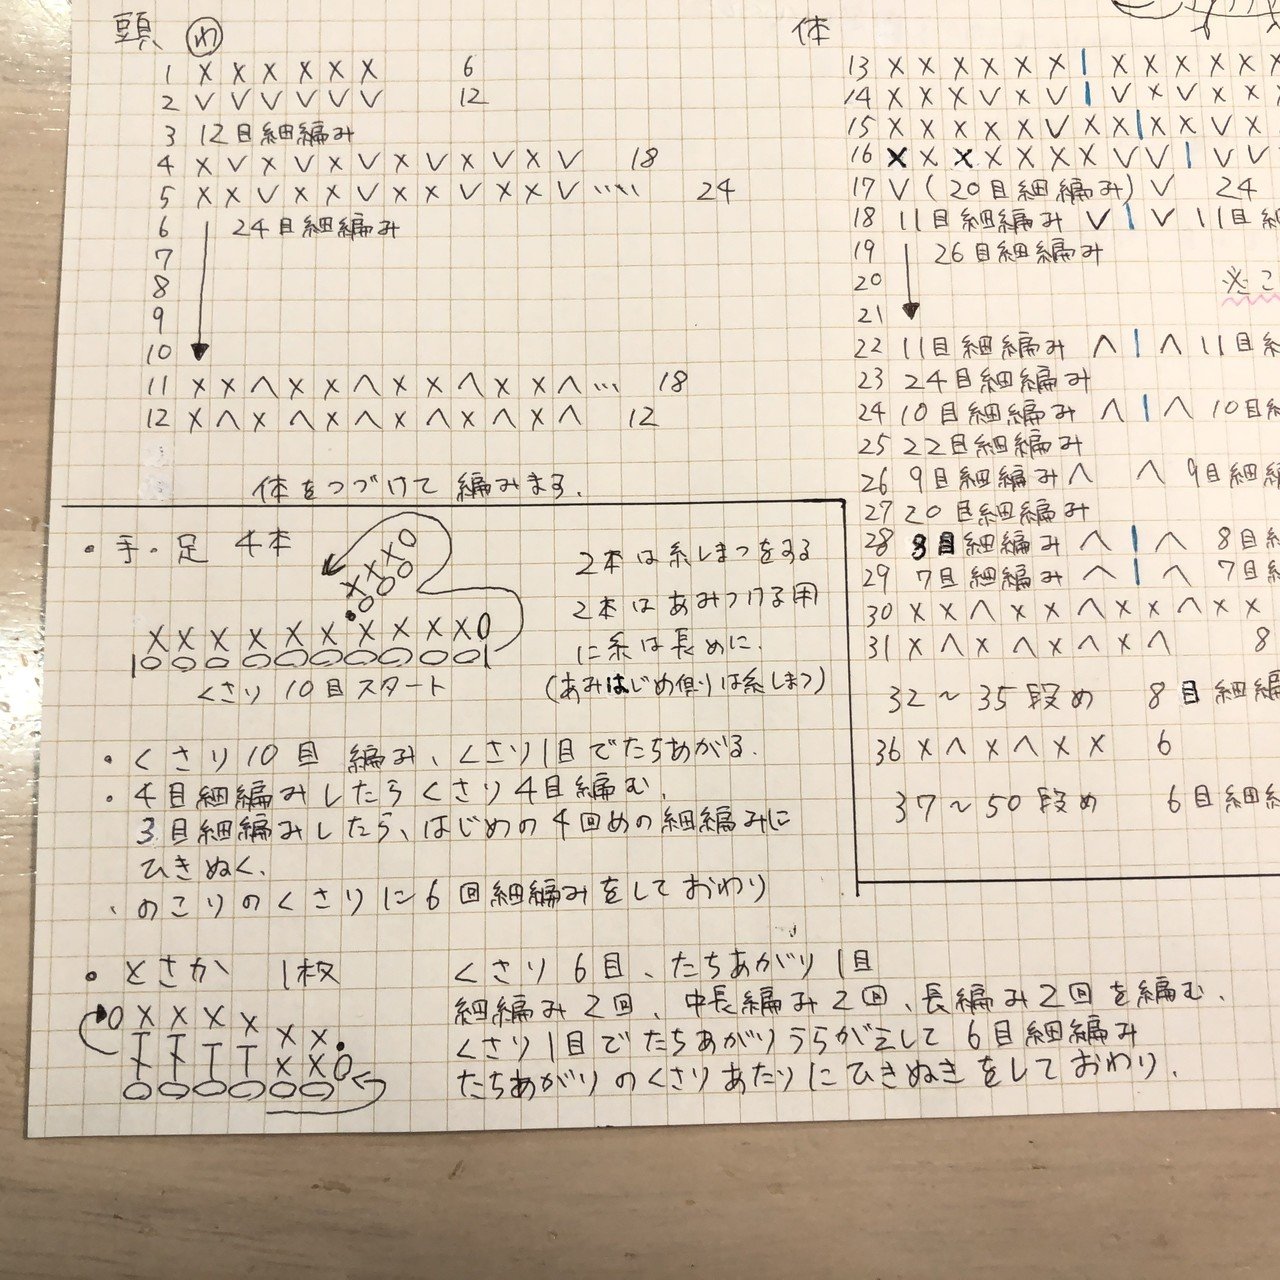 頭 わ
1 × × × × × × 6
2 V V V V V V 12
3 12目細編み
4 × V × V × V × V × V × V 18
5 × × V × × V × × V × × V ‥‥ 24
6 24目細編み
7
8
9
10
11 × × ∧ × × ∧ × × ∧ × × ∧ … 18
12 × ∧ × ∧ × ∧ × ∧ × ∧ × ∧ 12
体をつづけて編みます.
体
13 × × × × × × | × × × × × ×
14 × × × V × V | V × V × × ×
15 × × × × × V × × | × × V ×
16 × × × × × × × V V | V V
17 V (20目細編み) V 24
18 11目細編み V | V 11目細
19 26目細編み
20
※こ
21
22 11目細編み ∧ | ∧ 11目細
23 24目細編み
24 10目細編み ∧ | ∧ 10目細
25 22目細編み
26 9目細編み ∧ ∧ 9目細編
27 20目細編み
28 8目細編み ∧ | ∧ 8目細
29 7目細編み ∧ | ∧ 7目細
30 × × ∧ × × ∧ × × ∧ × ×
31 × ∧ × ∧ × ∧ × ∧ 8
32〜35段め 8目細編
36 × ∧ × ∧ × × 6
37〜50段め 6目細編
・手・足 4本
くさり10目スタート
2本は糸しまつをする
2本はあみつける用
に糸は長めに.
(あみはじめ側は糸しまつ)
・くさり10目編み、くさり1目でたちあがる.
・4目細編みしたらくさり4目編む.
3目細編みしたら、はじめの4回めの細編みに
ひきぬく.
、のこりのくさりに6回細編みをしておわり
・とさか 1枚
くさり6目、たちあがり1目
細編み2回、中長編み2回、長編み2回を編む.
くさり1目でたちあがりうらがえして6目細編み
たちあがりのくさりあたりにひきぬきをしておわり.